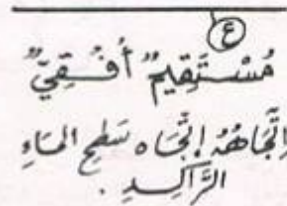 ع
مُسْتَقِيمٌ أُفُقِيٌّ
اِتِّجَاهُهُ إتِّجَاه سَطحِ المَاءِ
الرَّاكِدِ .